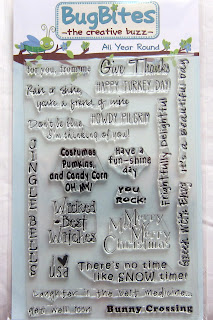 BugBites
~the creative buzz~
All Year Round
for you, from me
Give Thanks
HAPPY TURKEY DAY
Rain or shine,
you're a friend of mine
HOWDY PILGRIM
Don't be blue,
I'm thinking of you!
it's a beautiful day
Frightfully Delightful
Green With Envy
JINGLE BELLS
Costumes
Pumpkins,
and Candy Corn
OH MY!
Have a
fun-shine
day
YOU
ROCK!
Wicked
Best
Witches
Merry
Merry
Christmas
USA
There's no time
like SNOW time!
Laughter is the best medicine...
get well soon
Bunny Crossing